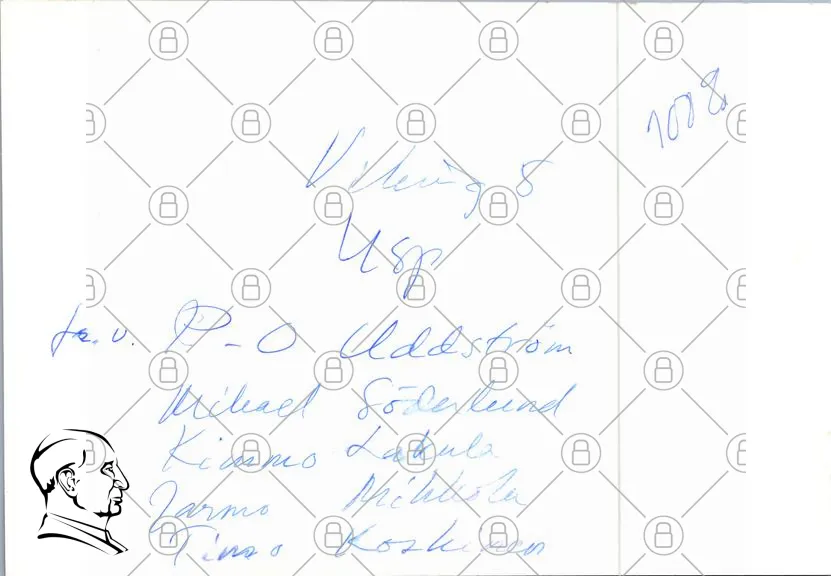 1008
Viking 5
Usp
fr. v. P-O Uddström
Mikael Söderlund
Kimmo Lakula
Jarmo Mikkola
Timo Koskinen